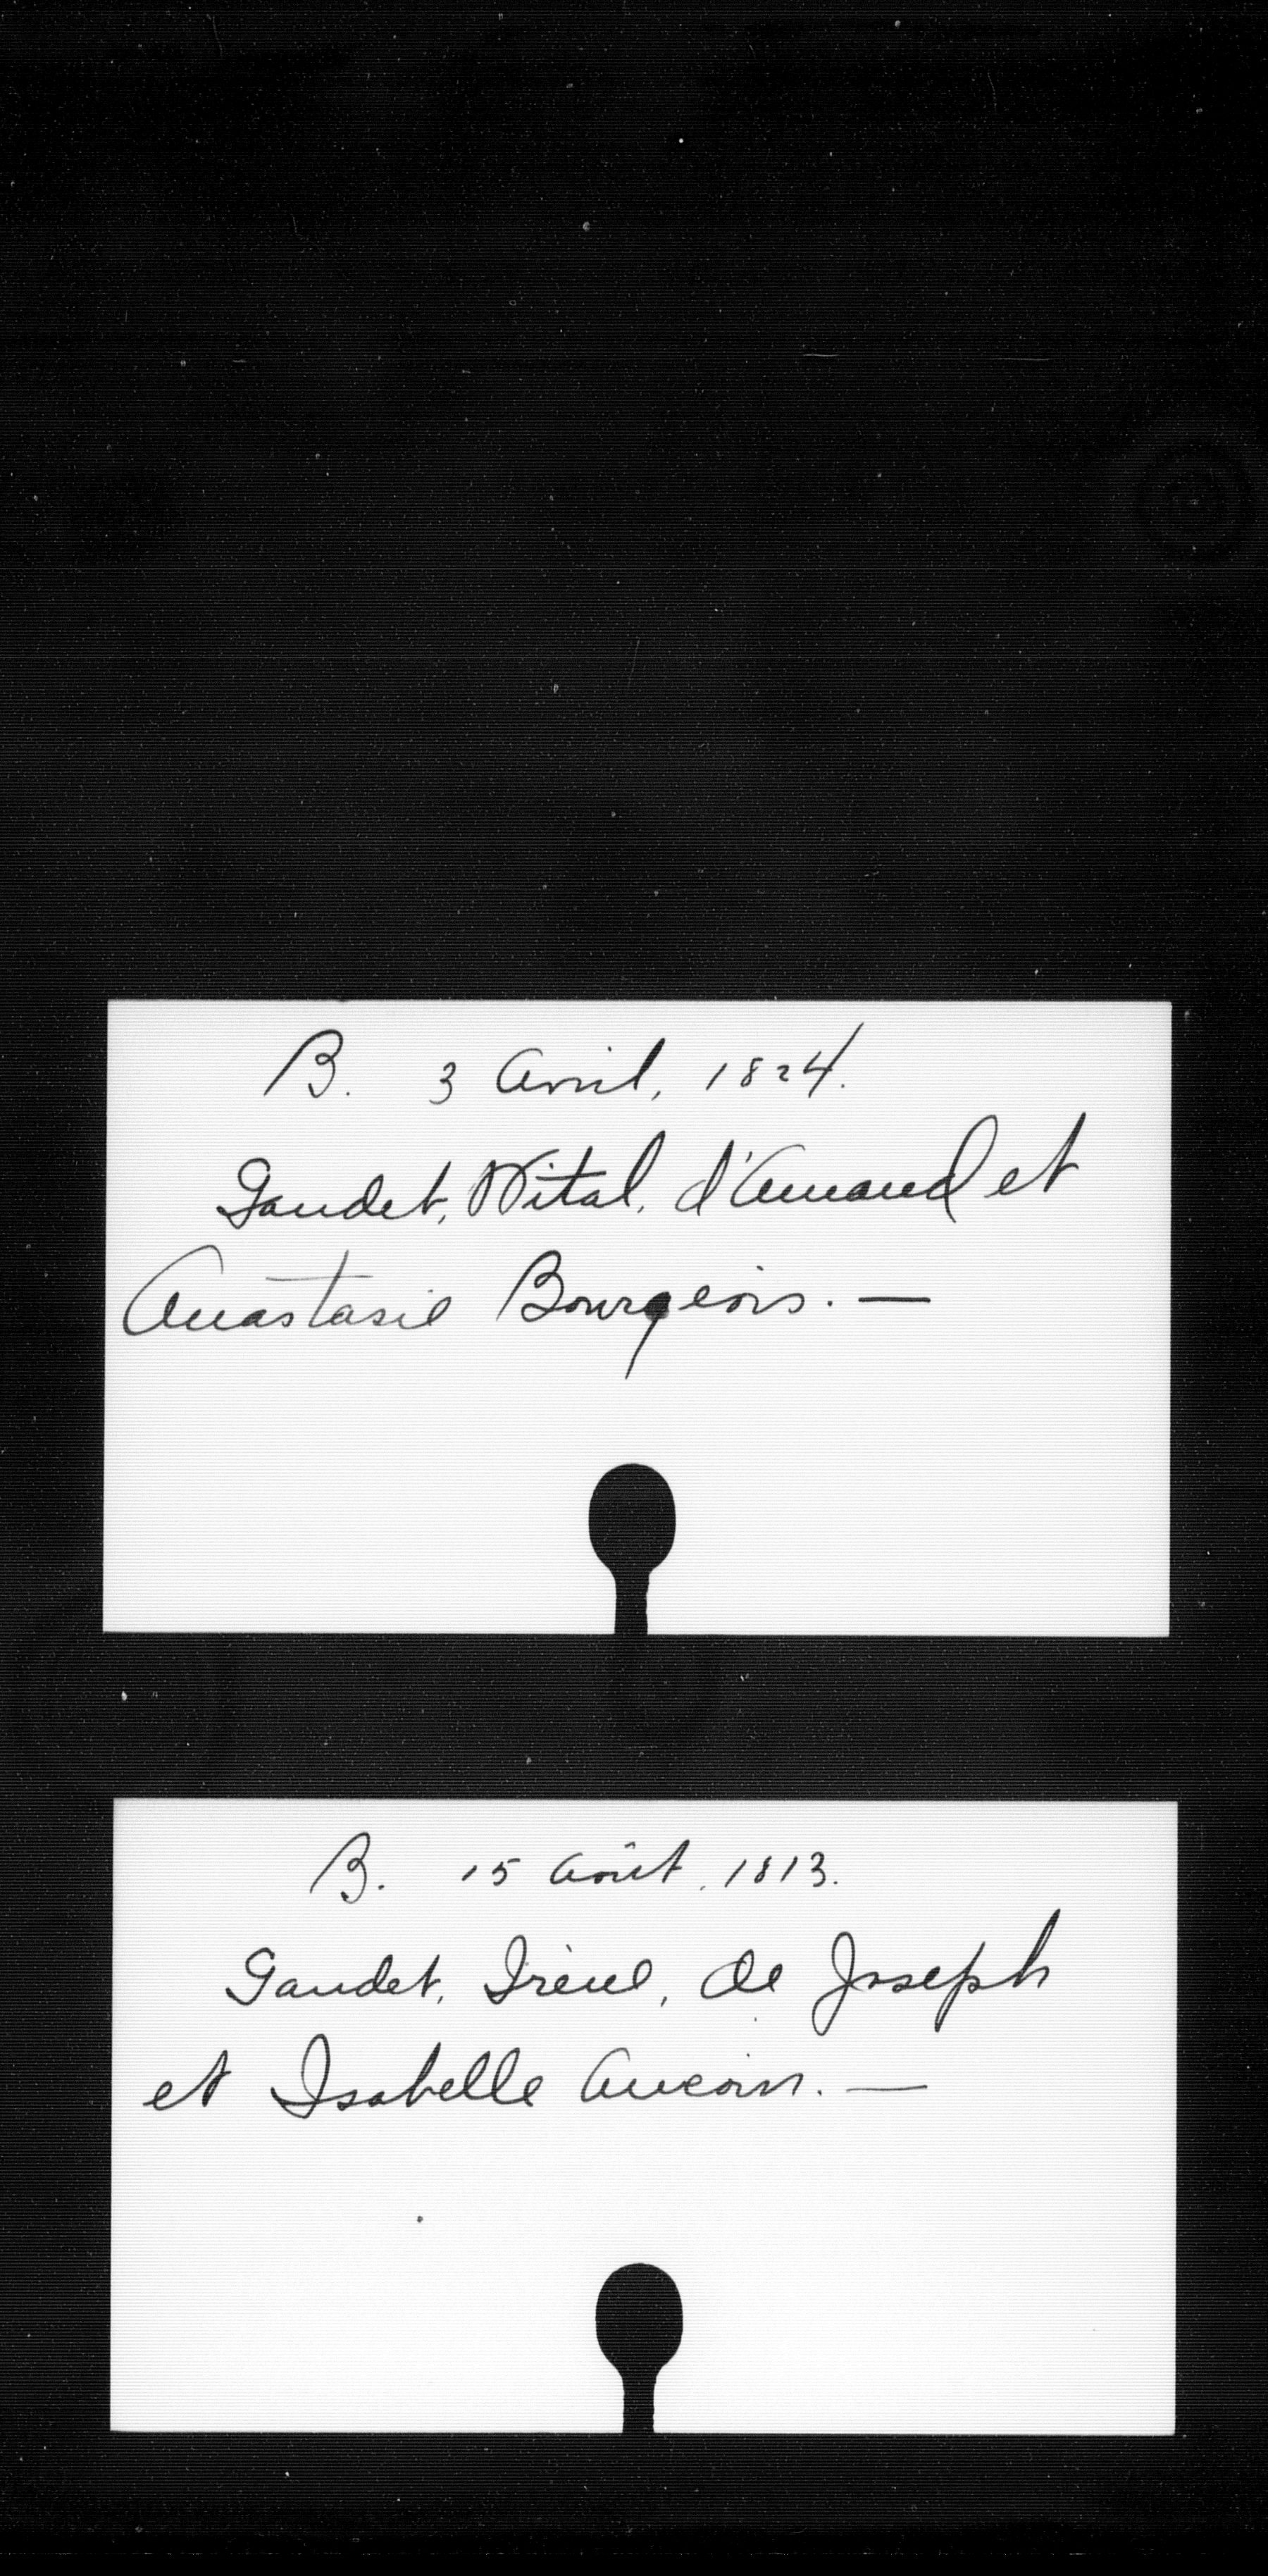 B. 3 Avril, 1824.
Gaudet, Vital, d'Amand et
Anastasie Bourgeois. —
B. 15 Août, 1813.
Gaudet, Irène, de Joseph
et Isabelle Aucoin. —